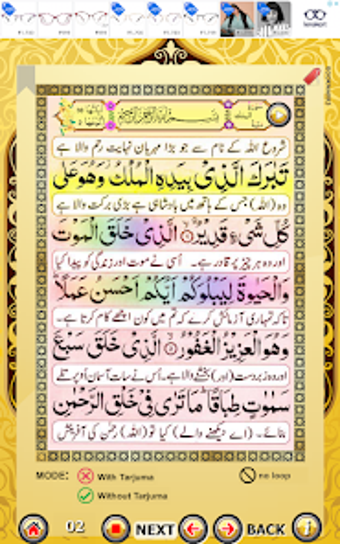 بِسْمِ اللهِ الرَّحْمٰنِ الرَّحِيْمِ
شروع اللہ کے نام سے جو بڑا مہربان نہایت رحم والا ہے
تَبٰرَكَ الَّذِيْ بِيَدِهِ الْمُلْكُ وَهُوَ عَلٰى
وہ (اللہ) جس کے ہاتھ میں بادشاہی ہے بڑی برکت والا ہے
كُلِّ شَيْءٍ قَدِيْرُ ۝ الَّذِيْ خَلَقَ الْمَوْتَ
اور وہ ہر چیز پر قادر ہے۔ اُسی نے موت اور زندگی کو پیدا کیا
وَالْحَيٰوةَ لِيَبْلُوَكُمْ اَيُّكُمْ اَحْسَنُ عَمَلًا
تاکہ تمہاری آزمائش کرے کہ تم میں کون اچھے کام کرتا ہے۔
وَهُوَ الْعَزِيْزُ الْغَفُوْرُ ۝ الَّذِيْ خَلَقَ سَبْعَ
اور وہ زبردست (اور) بخشنے والا ہے۔ اُس نے سات آسمان اُوپر تلے
سَمٰوٰتٍ طِبَاقًا مَا تَرٰى فِيْ خَلْقِ الرَّحْمٰنِ
بنائے۔ (اے دیکھنے والے) کیا تو (اللہ) رحمٰن کی آفرینش
MODE: With Tarjuma no loop
Without Tarjuma
02 NEXT BACK